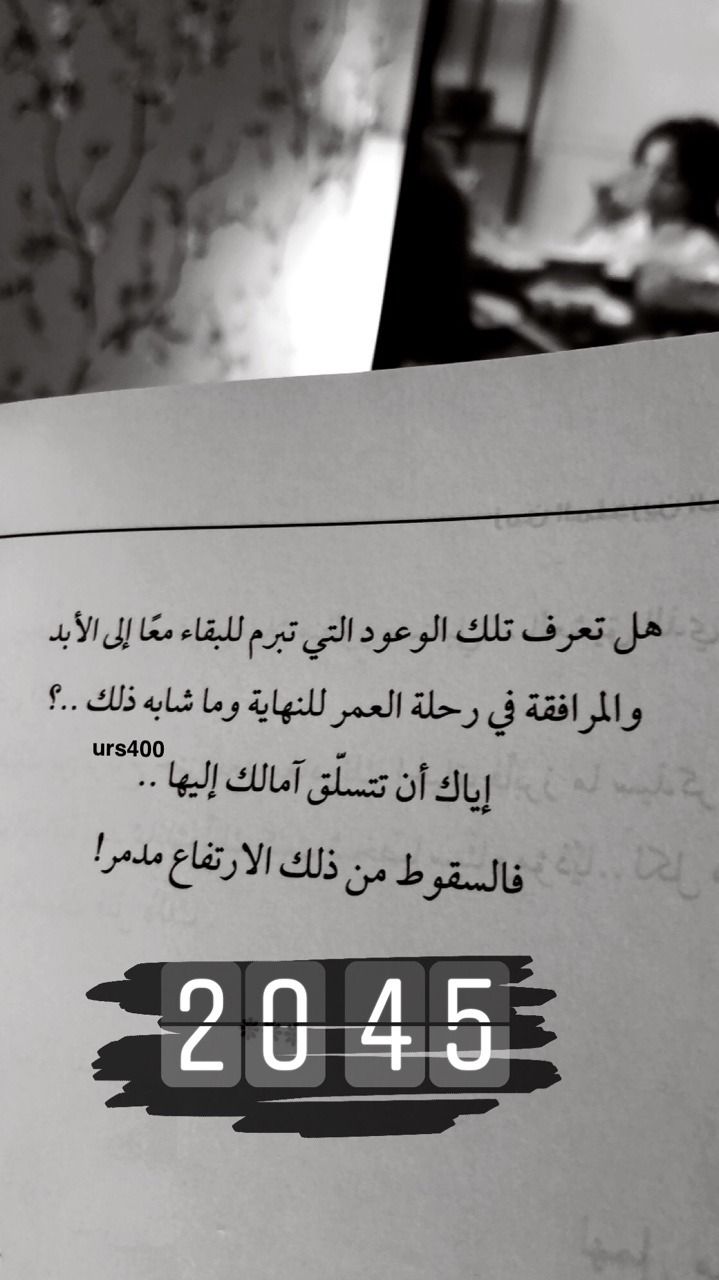 هل تعرف تلك الوعود التي تبرم للبقاء معًا إلى الأبد
والمرافقة في رحلة العمر للنهاية وما شابه ذلك ..؟
urs400
إياك أن تتسلّق آمالك إليها ..
فالسقوط من ذلك الارتفاع مدمر!
20 45